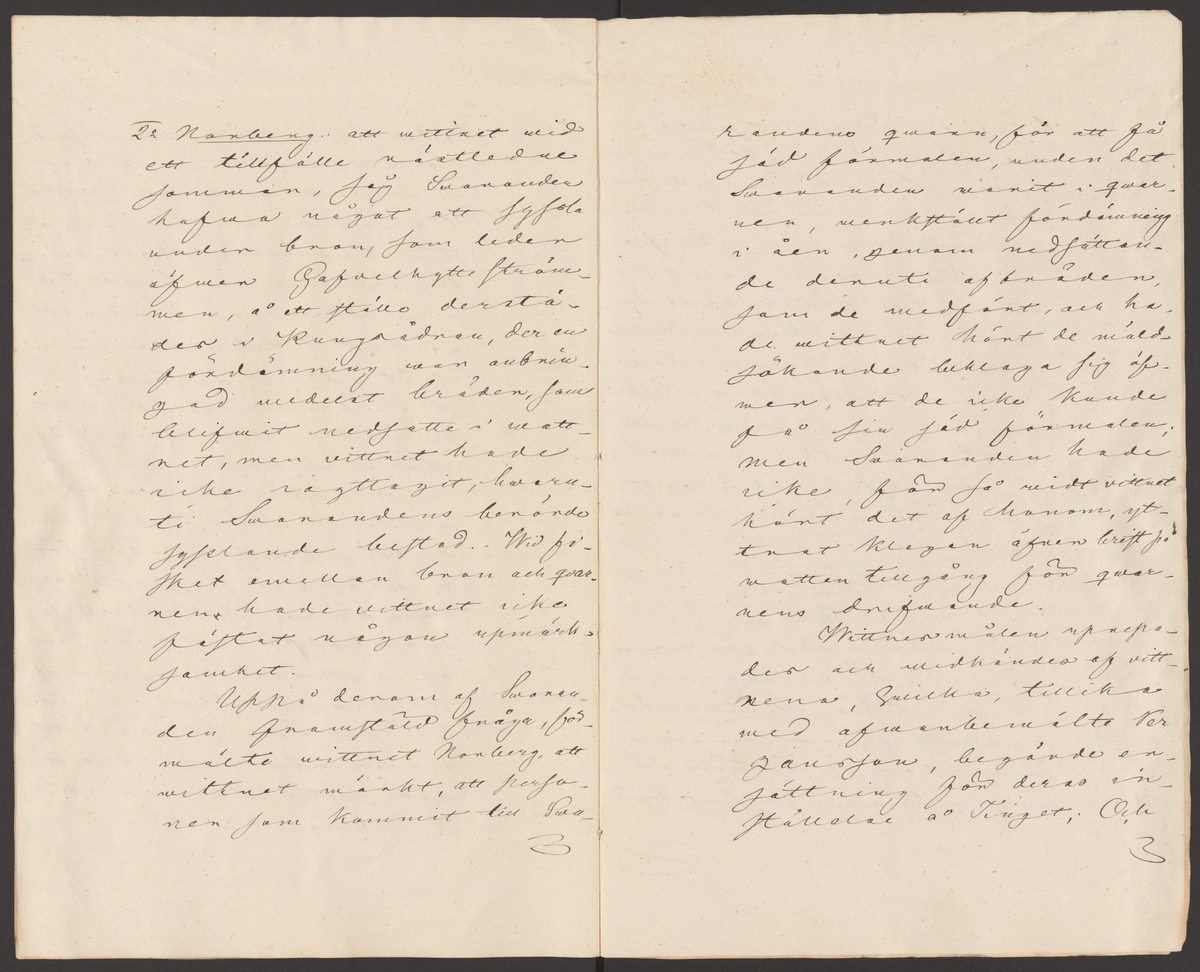 2a Norberg: att wittnet wid
ett tillfälle nästledne
sommar, såg Swaranden
hafwa något att syssla
under bron, som leder
öfwer Gafvelhytte ström-
men, å ett ställe derstä-
des i Kungsådran, der en
fördämning war anbrin-
gad medelst bräden, som
blifwit nedsatte i watt-
net, men vittnet hade
icke iagttagit, hwaru-
ti Swarandens berörde
sysslande bestod. Wid fi-
sket emellan bron och qvar-
nen hade vittnet icke
fästat någon upmärk-
samhet.
Uppå derom af Swaran-
den framstäld fråga, för-
mälte wittnet Norberg, att
wittnet märkt, att perso-
ner som kommit till Swa-
randens qwarn, för att få
säd förmalen, under det
Swaranden warit i qwar-
nen, werkstält fördämning
i åen, genom nedsättan-
de deruti af bräden,
som de medfört, och ha-
de wittnet hört de mäld-
sökande beklaga sig öf-
wer, att de icke kunde
få sin säd förmalen,
men Swaranden hade
icke, för så widt vittnet
hört det af honom, yt-
trat klagan öfver brist på
watten tillgång för qwar-
nens drifwande.
Wittnesmålen uprepa-
des och widkändes af vitt-
nena, hwilka, tillika
med ofwanbemälte Per
Jansson, begärde er-
sättning för deras in-
ställelse å Tinget; Och